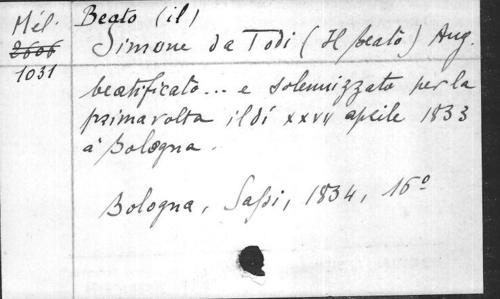 Mél.
2606
1031
Beato (il)
Simone da Todi (Il beato) Aug.
beatificato... e solennizzato per la
prima volta il dí xxvii aprile 1833
a Bologna.
Bologna, Sassi, 1834, 16º